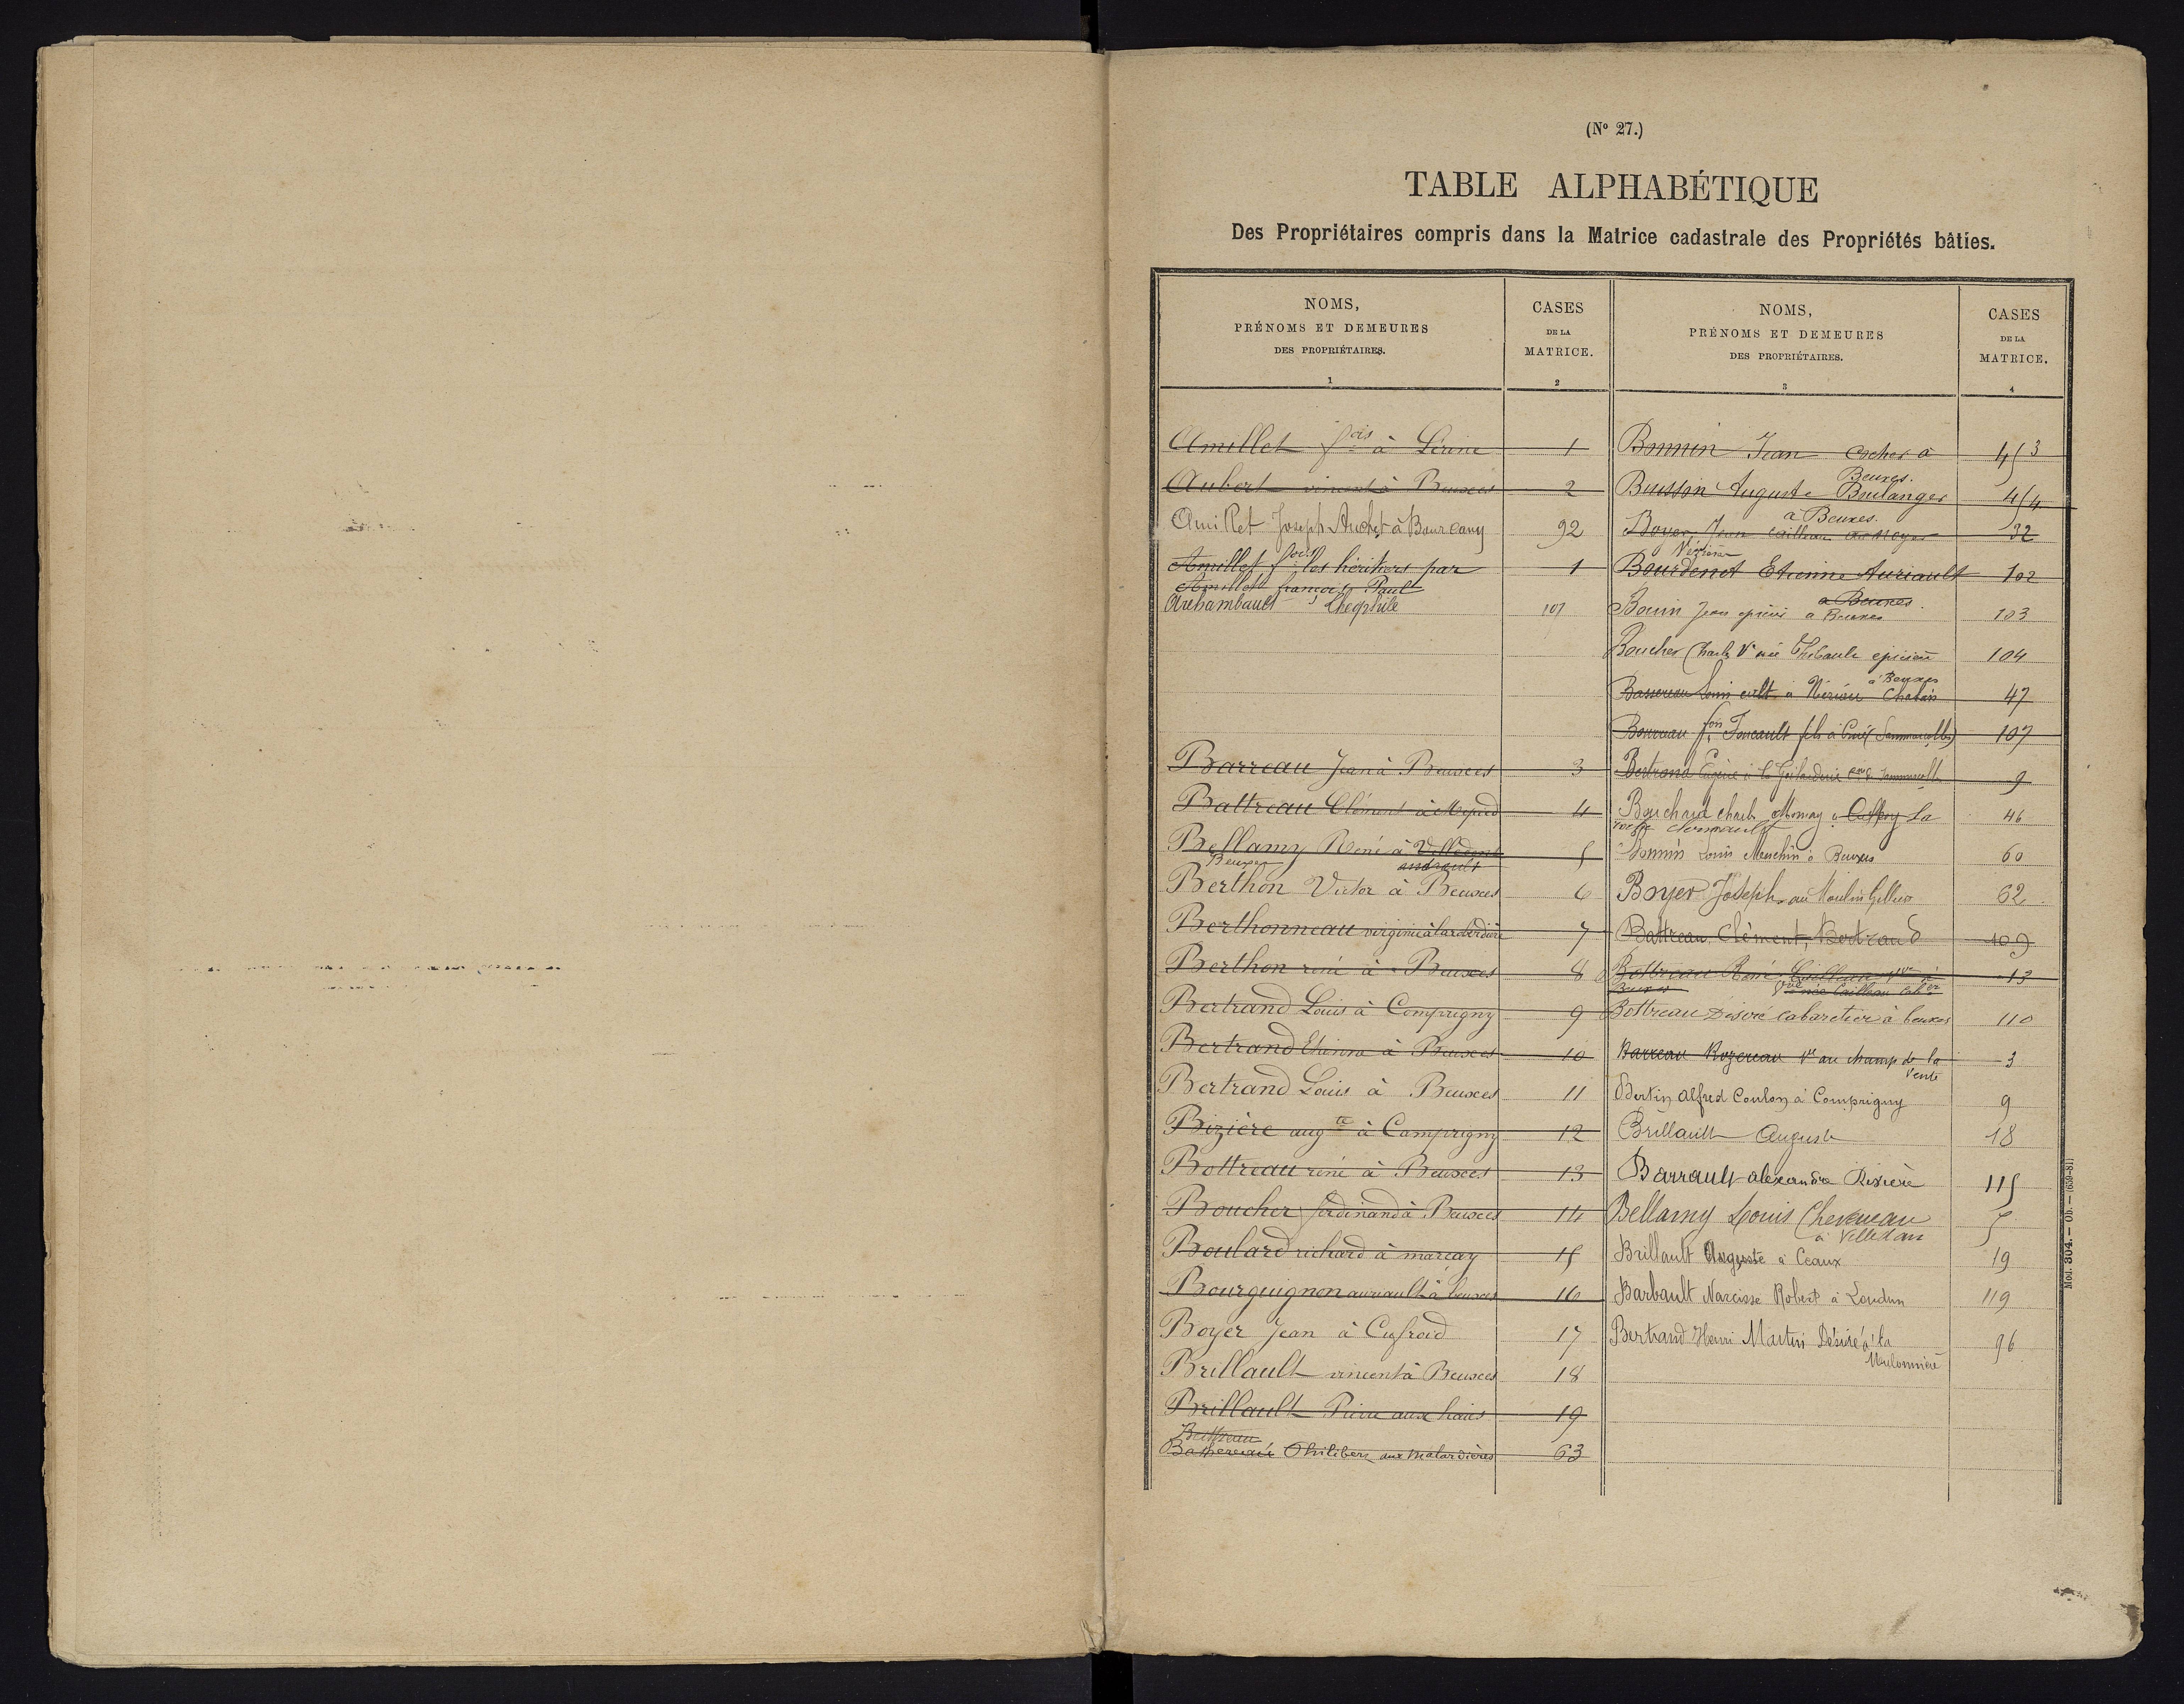 (Nº 27.)
TABLE ALPHABÉTIQUE
Des Propriétaires compris dans la Matrice cadastrale des Propriétés bâties.
NOMS,
PRÉNOMS ET DEMEURES
DES PROPRIÉTAIRES.
1
CASES
DE LA
MATRICE.
2
Amillet fcis à Lérine 1
Aubert vincent à Beuxes 2
Amillet Joseph 92
Amillet fcois les héritiers par 1
Amillet françois Paul
Archambault Théophile 107
Barreau Jean à Beuxes 3
Battreau Clément à 4
Bellamy René à Villedent 5
Beuxes
Berthon Victor à Beuxes 6
Berthonneau virginie 7
Berthon réné à Beuxes 8
Bertrand Louis à Comprigny 9
Bertrand Etienne à Beuxes 10
Bertrand Louis à Beuxes 11
Bizière augte à Comprigny 12
Bottreau réné à Beuxes 13
Boucher ferdinand à Beuxes 14
Boulard richard à marcay 15
Bourguignon auriault à beuxes 16
Boyer Jean à Cufroid 17
Brillault vincent à Beuxes 18
Brillault Pierre aux haies 19
Battreau
Philibert aux malardières 63
NOMS,
PRÉNOMS ET DEMEURES
DES PROPRIÉTAIRES.
3
CASES
DE LA
MATRICE.
4
Bonnin Jean cocher à 453
Beuxes.
Buisson Auguste Boulanger 454
à Beuxes.
Boyer Jean cailleau 32
Bourdenet Etienne Auriault 102
à Beuxes
Bouin Jean épicier à Beuxes 103
Boucher Charles Ve née Thibault 104
à Beuxes
Louis cult. à 47
fois Foucault fils à 107
Bertrand Eugène à la 9
Bouchaud charles à La 46
Bonnin Louis à Beuxes 60
Boyer Joseph au Moulin 62
Battreau Clément, Bertrand 109
Bottreau René Cailleau 13
Beuxes Vve née Cailleau
Bottreau Désiré cabaretier à beuxes 110
Barreau Rozereau Ve au champ de la 3
vente
Bertin Alfred Coulon à Comprigny 9
Brillault Auguste 18
Barrault alexandre Rivière 115
Bellamy Louis 5
à Villedan
Brillault Auguste à Ceaux 19
Barbault Narcisse Robert à Loudun 119
Bertrand Henri Martin Désiré à la 96
Mod. 304. — Ob. — (659-81)